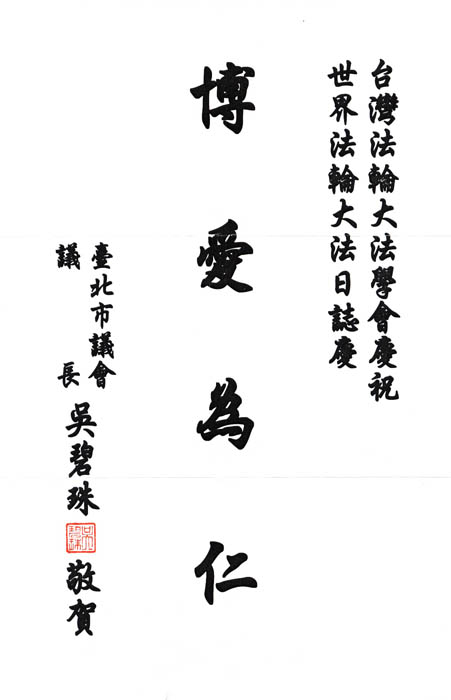 台灣法輪大法學會慶祝
世界法輪大法日誌慶
博愛為仁
臺北市議會
議長
吳碧珠
敬賀